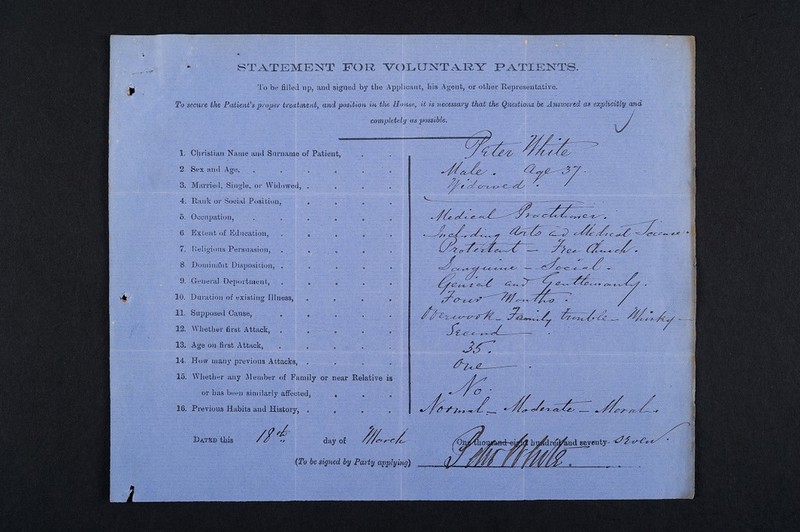 STATEMENT FOR VOLUNTARY PATIENTS.
To be filled up, and signed by the Applicant, his Agent, or other Representative.
To secure the Patient's proper treatment, and position in the House, it is necessary that the Questions be Answered as explicitly and
completely as possible.
1. Christian Name and Surname of Patient, Peter White
2 Sex and Age, Male. Age 37.
3. Married, Single, or Widowed, Widowed.
4. Rank or Social Position,
5. Occupation, Medical Practitioner.
6 Extent of Education, Including Arts and Medical Science.
7. Religious Persuasion, Protestant – Free Church.
8 Dominant Disposition, Sanguine – Social.
9. General Deportment, Genial and Gentlemanly.
10. Duration of existing Illness, Four Months.
11. Supposed Cause, Overwork – Family trouble – Whisky –
12. Whether first Attack, Second
13. Age on first Attack, 35.
14 How many previous Attacks, One
15. Whether any Member of Family or near Relative is
or has been similarly affected, No.
16. Previous Habits and History, Normal – Moderate – Moral –
DATED this 18th day of March One thousand eight hundred and seventy-seven.
(To be signed by Party applying) Peter White.